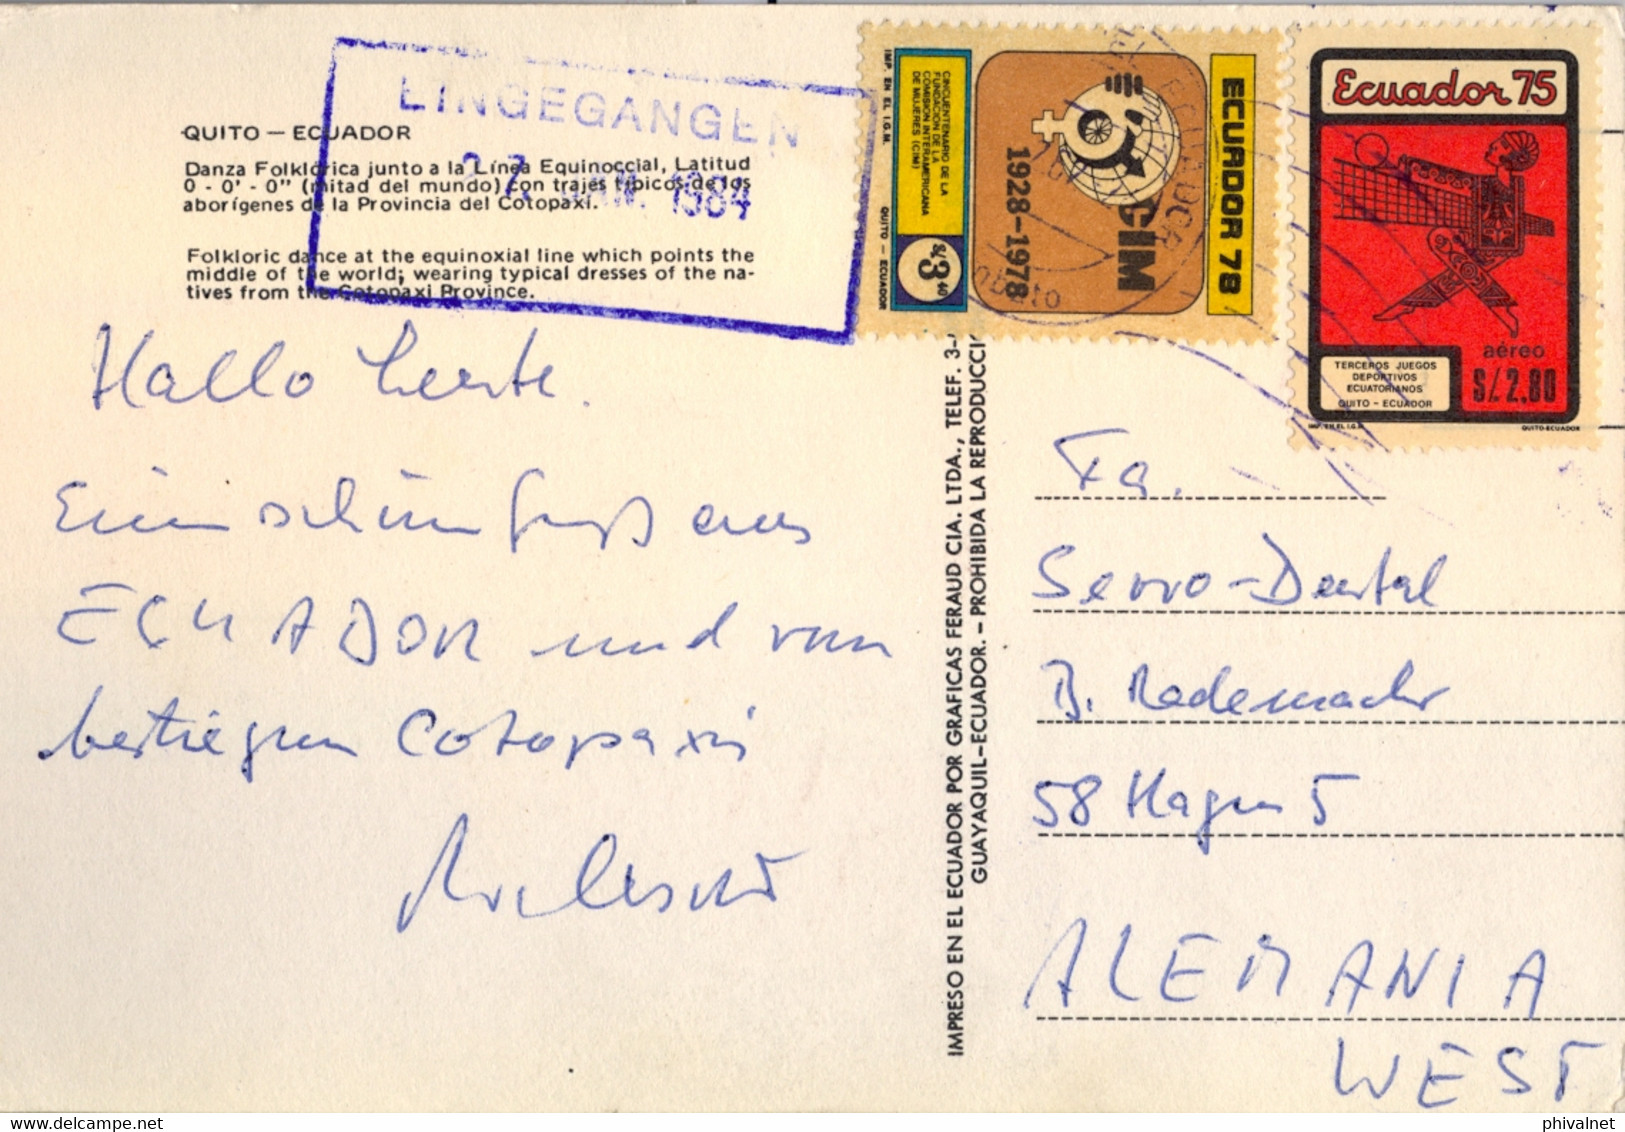 EINGEGANGEN
27. JAN. 1984
QUITO — ECUADOR
Danza Folklórica junto a la Línea Equinoccial, Latitud
0 - 0' - 0" (mitad del mundo) con trajes típicos de los
aborígenes de la Provincia del Cotopaxi.
Folkloric dance at the equinoxial line which points the
middle of the world; wearing typical dresses of the na-
tives from the Cotopaxi Province.
Hallo Leute.
Einen schönen Gruß aus
ECUADOR und vom
bestiegenen Cotopaxi
IMPRESO EN EL ECUADOR POR GRAFICAS FERAUD CIA. LTDA., TELEF. 3-
GUAYAQUIL-ECUADOR. - PROHIBIDA LA REPRODUCCIO
IMP. EN EL I.G.M. QUITO - ECUADOR
CINCUENTENARIO DE LA
FUNDACION DE LA
COMISION INTERAMERICANA
DE MUJERES (CIM)
S/. 3 40
1928-1978
CIM
ECUADOR 78
Ecuador 75
aéreo
S/. 2,80
TERCEROS JUEGOS
DEPORTIVOS
ECUATORIANOS
QUITO - ECUADOR
IMP. EN EL I.G.M. QUITO-ECUADOR
Fa.
Servo-Dental
B. Rademacher
58 Hagen 5
ALEMANIA
WEST
phivalnet